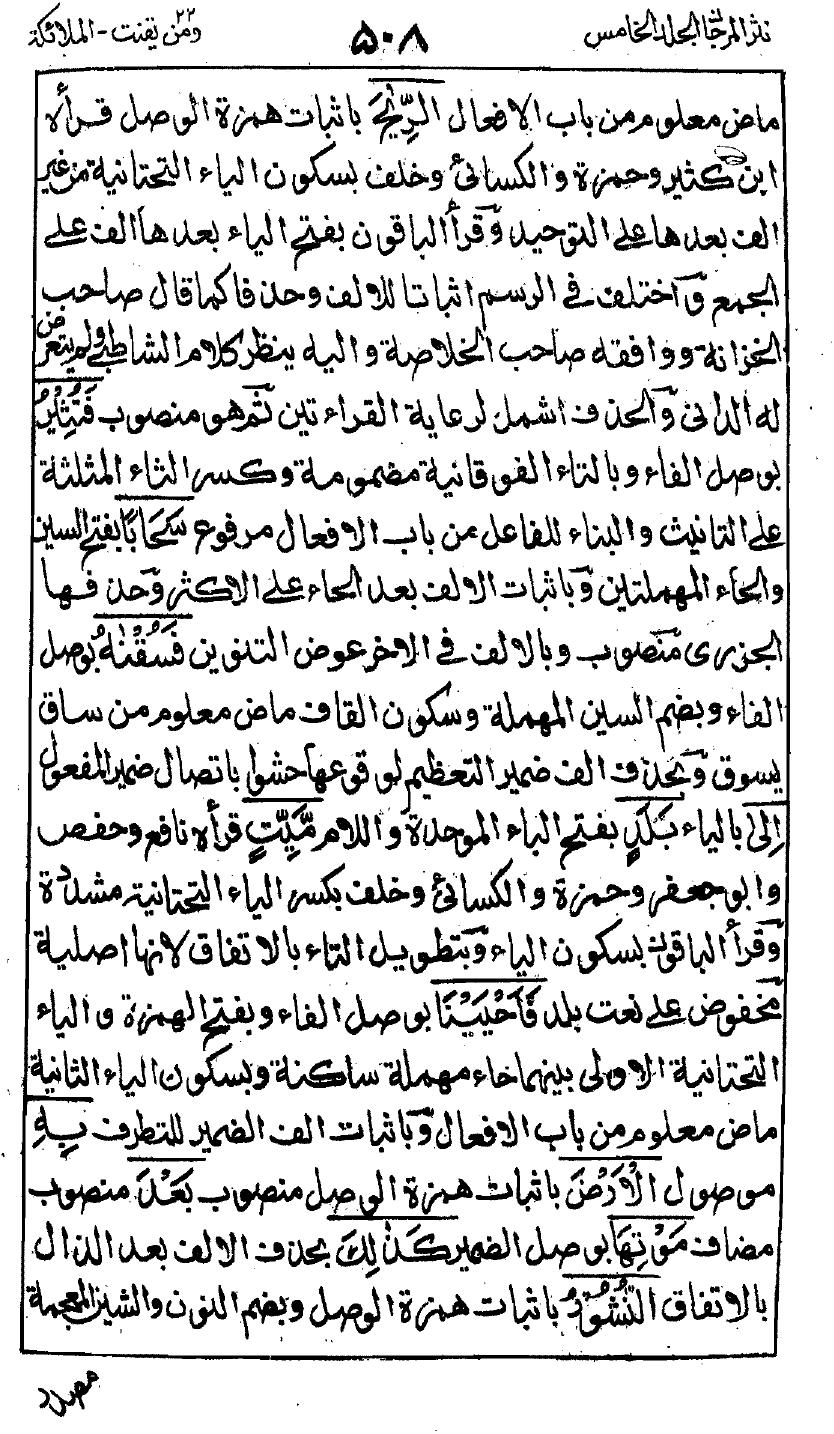 نثر المرجان المجلد الخامس
٥٠٨
ومن يقنت ٢٢ - الملائكة
ماض معلوم من باب الافعال الرِّيٰحَ باثبات همزة الوصل قرأه
ابن كثير وحمزة والكسائي وخلف بسكون الياء التحتانية من غير
الف بعدها على التوحيد وقرأ الباقون بفتح الياء بعدها الف على
الجمع واختلف في الرسم اثباتا للالف وحذفا كما قال صاحب
الخزانة ووافقه صاحب الخلاصة واليه ينظر كلام الشاطبي ولم يتعرض
له الداني والحذف اشمل لرعاية القراءتين ثم هو منصوب فَتُثِيْرُ
بوصل الفاء وبالتاء الفوقانية مضمومة وكسر الثاء المثلثة
على التانيث والبناء للفاعل من باب الافعال مرفوع سَحَابًا بفتح السين
والحاء المهملتين وباثبات الالف بعد الحاء على الاكثر وحذفها
الجزري منصوب وبالالف في الاخر عوض التنوين فَسُقْنٰهُ بوصل
الفاء وبضم السين المهملة وسكون القاف ماض معلوم من ساق
يسوق وبحذف الف ضمير التعظيم لوقوعها حشوا باتصال ضمير المفعول
اِلٰى بالياء بَلَدٍ بفتح الباء الموحدة واللام مَّيِّتٍ قرأه نافع وحفص
وابو جعفر وحمزة والكسائي وخلف بكسر الياء التحتانية مشددة
وقرأ الباقون بسكون الياء وبتطويل التاء بالاتفاق لانها اصلية
مخفوض على نعت بلد فَاَحْيَيْنَا بوصل الفاء وبفتح الهمزة والياء
التحتانية الاولى بينهما حاء مهملة ساكنة وبسكون الياء الثانية
ماض معلوم من باب الافعال وباثبات الف الضمير للتطرف بِهِ
موصول الْاَرْضَ باثبات همزة الوصل منصوب بَعْدَ منصوب
مضاف مَوْتِهَا بوصل الضمير كَذٰلِكَ بحذف الالف بعد الذال
بالاتفاق النُّشُوْرُ باثبات همزة الوصل وبضم النون والشين المعجمة
مصدر